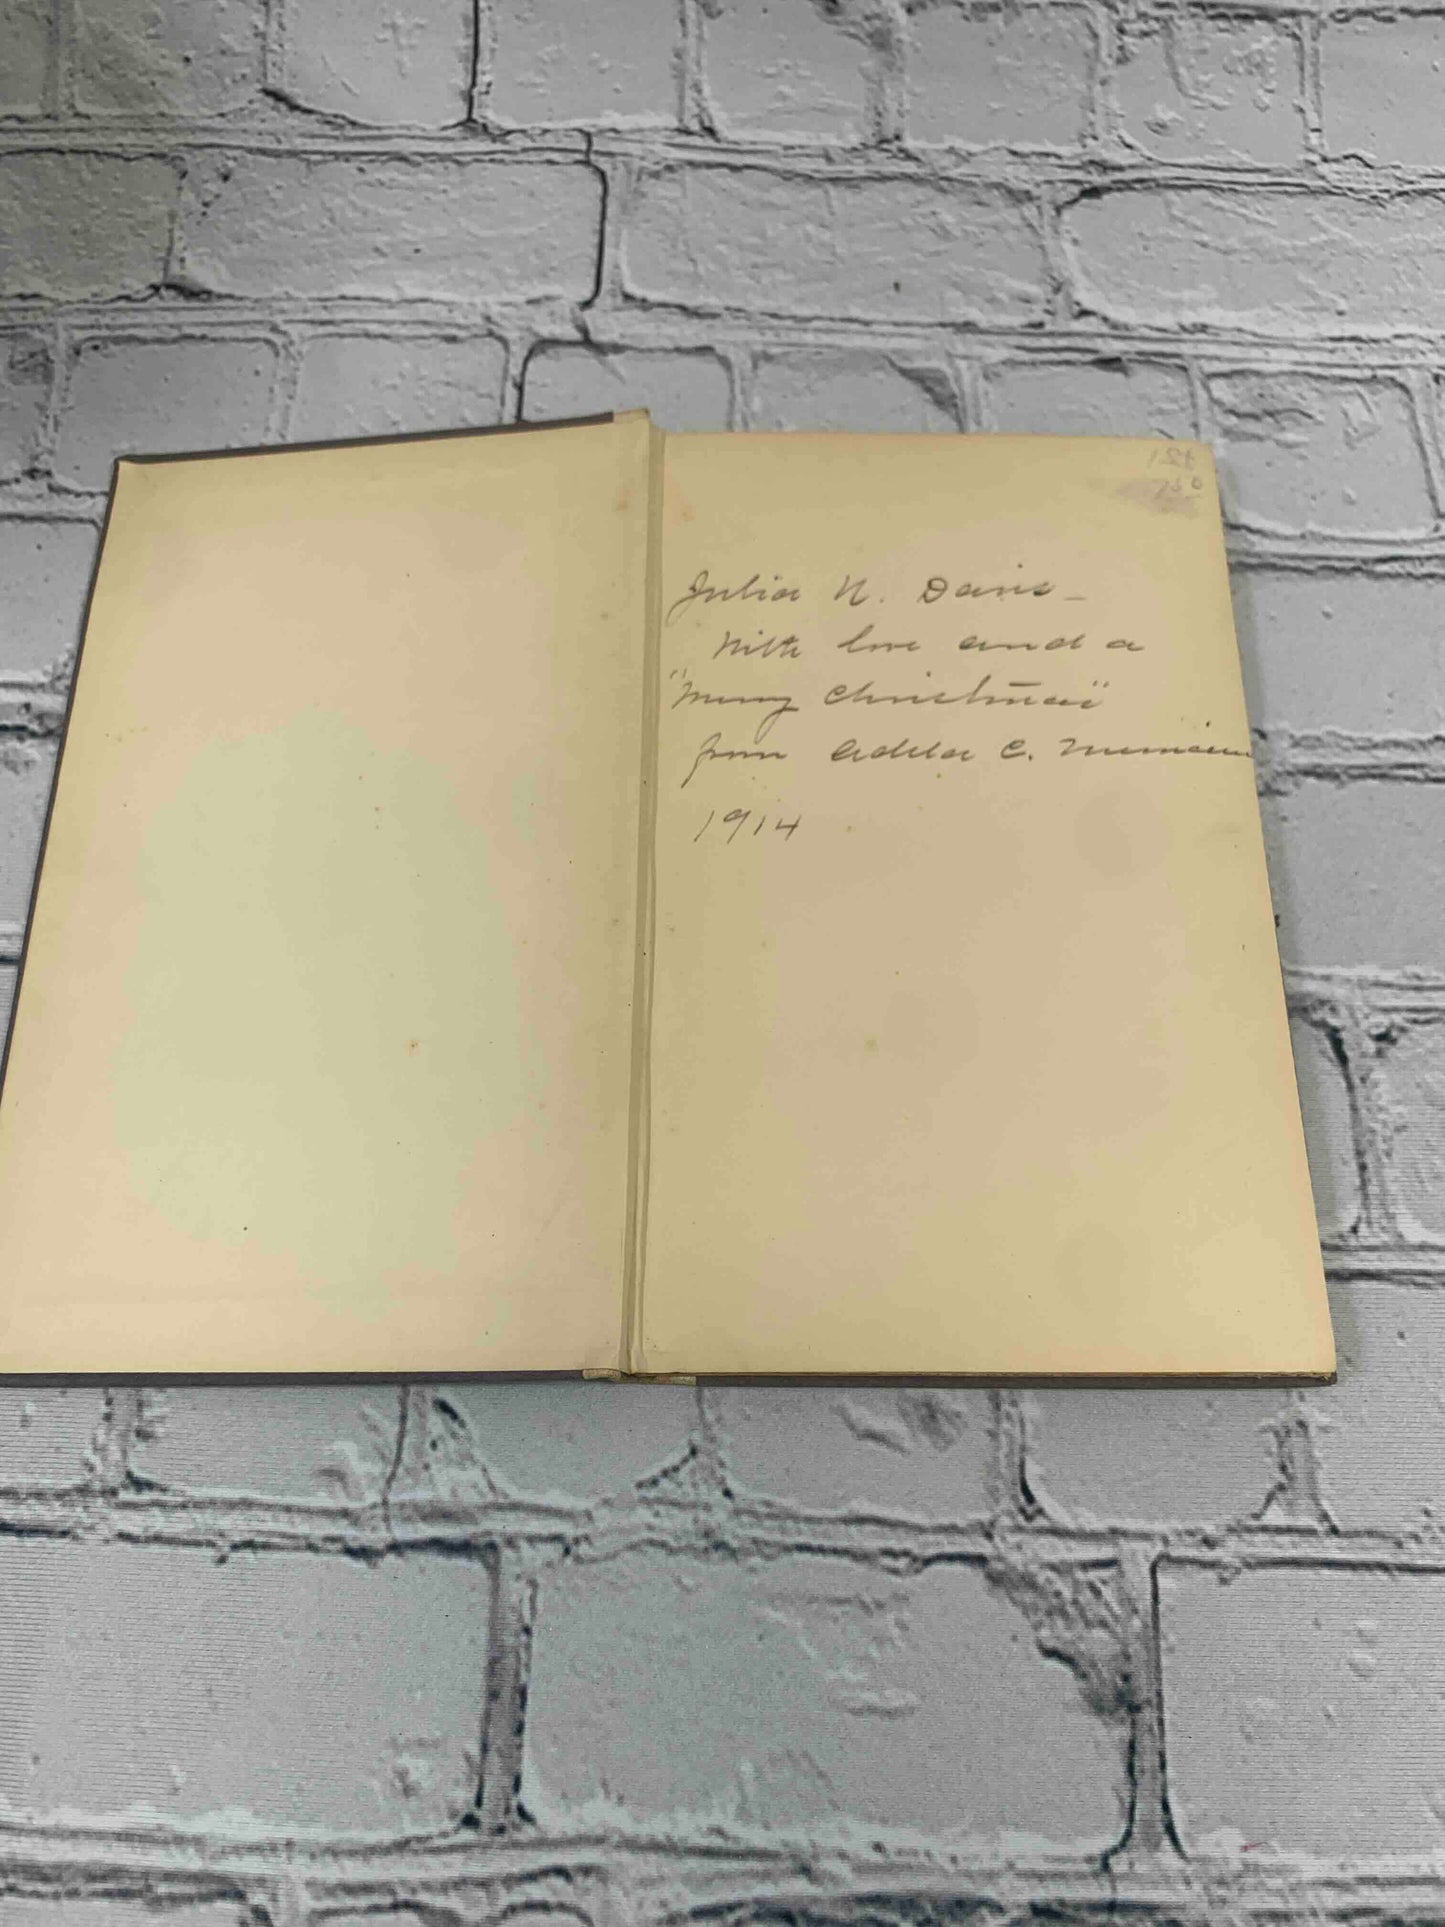 Julia N. Davis -
With love and a
"Merry Christmas"
from Adela C.
1914